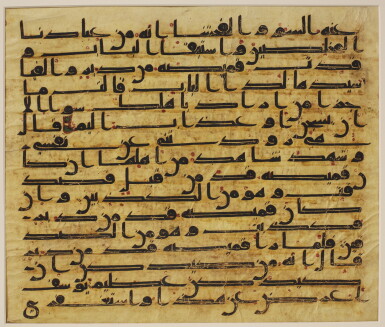 عنه السو والفحشا انه من عبادنا
المخلصين واستبقا الباب و
قدت قميصه من دبر والفيا
سيدها لدا الباب قالت ما
جزا من اراد باهلك سوا الا
ان يسجن او عذاب اليم قال
هي رودتني عن نفسي
وشهد شاهد من اهلها ان كا
ن قميصه قد من قبل فصد
قت وهو من الكذبين وان
كان قميصه قد من دبر
فكذبت وهو من الصد
قين فلما را قميصه قد من دبر
قال انه من كيدكن ان
كيدكن عظيم يوسف
اعرض عن هذا واستغفر